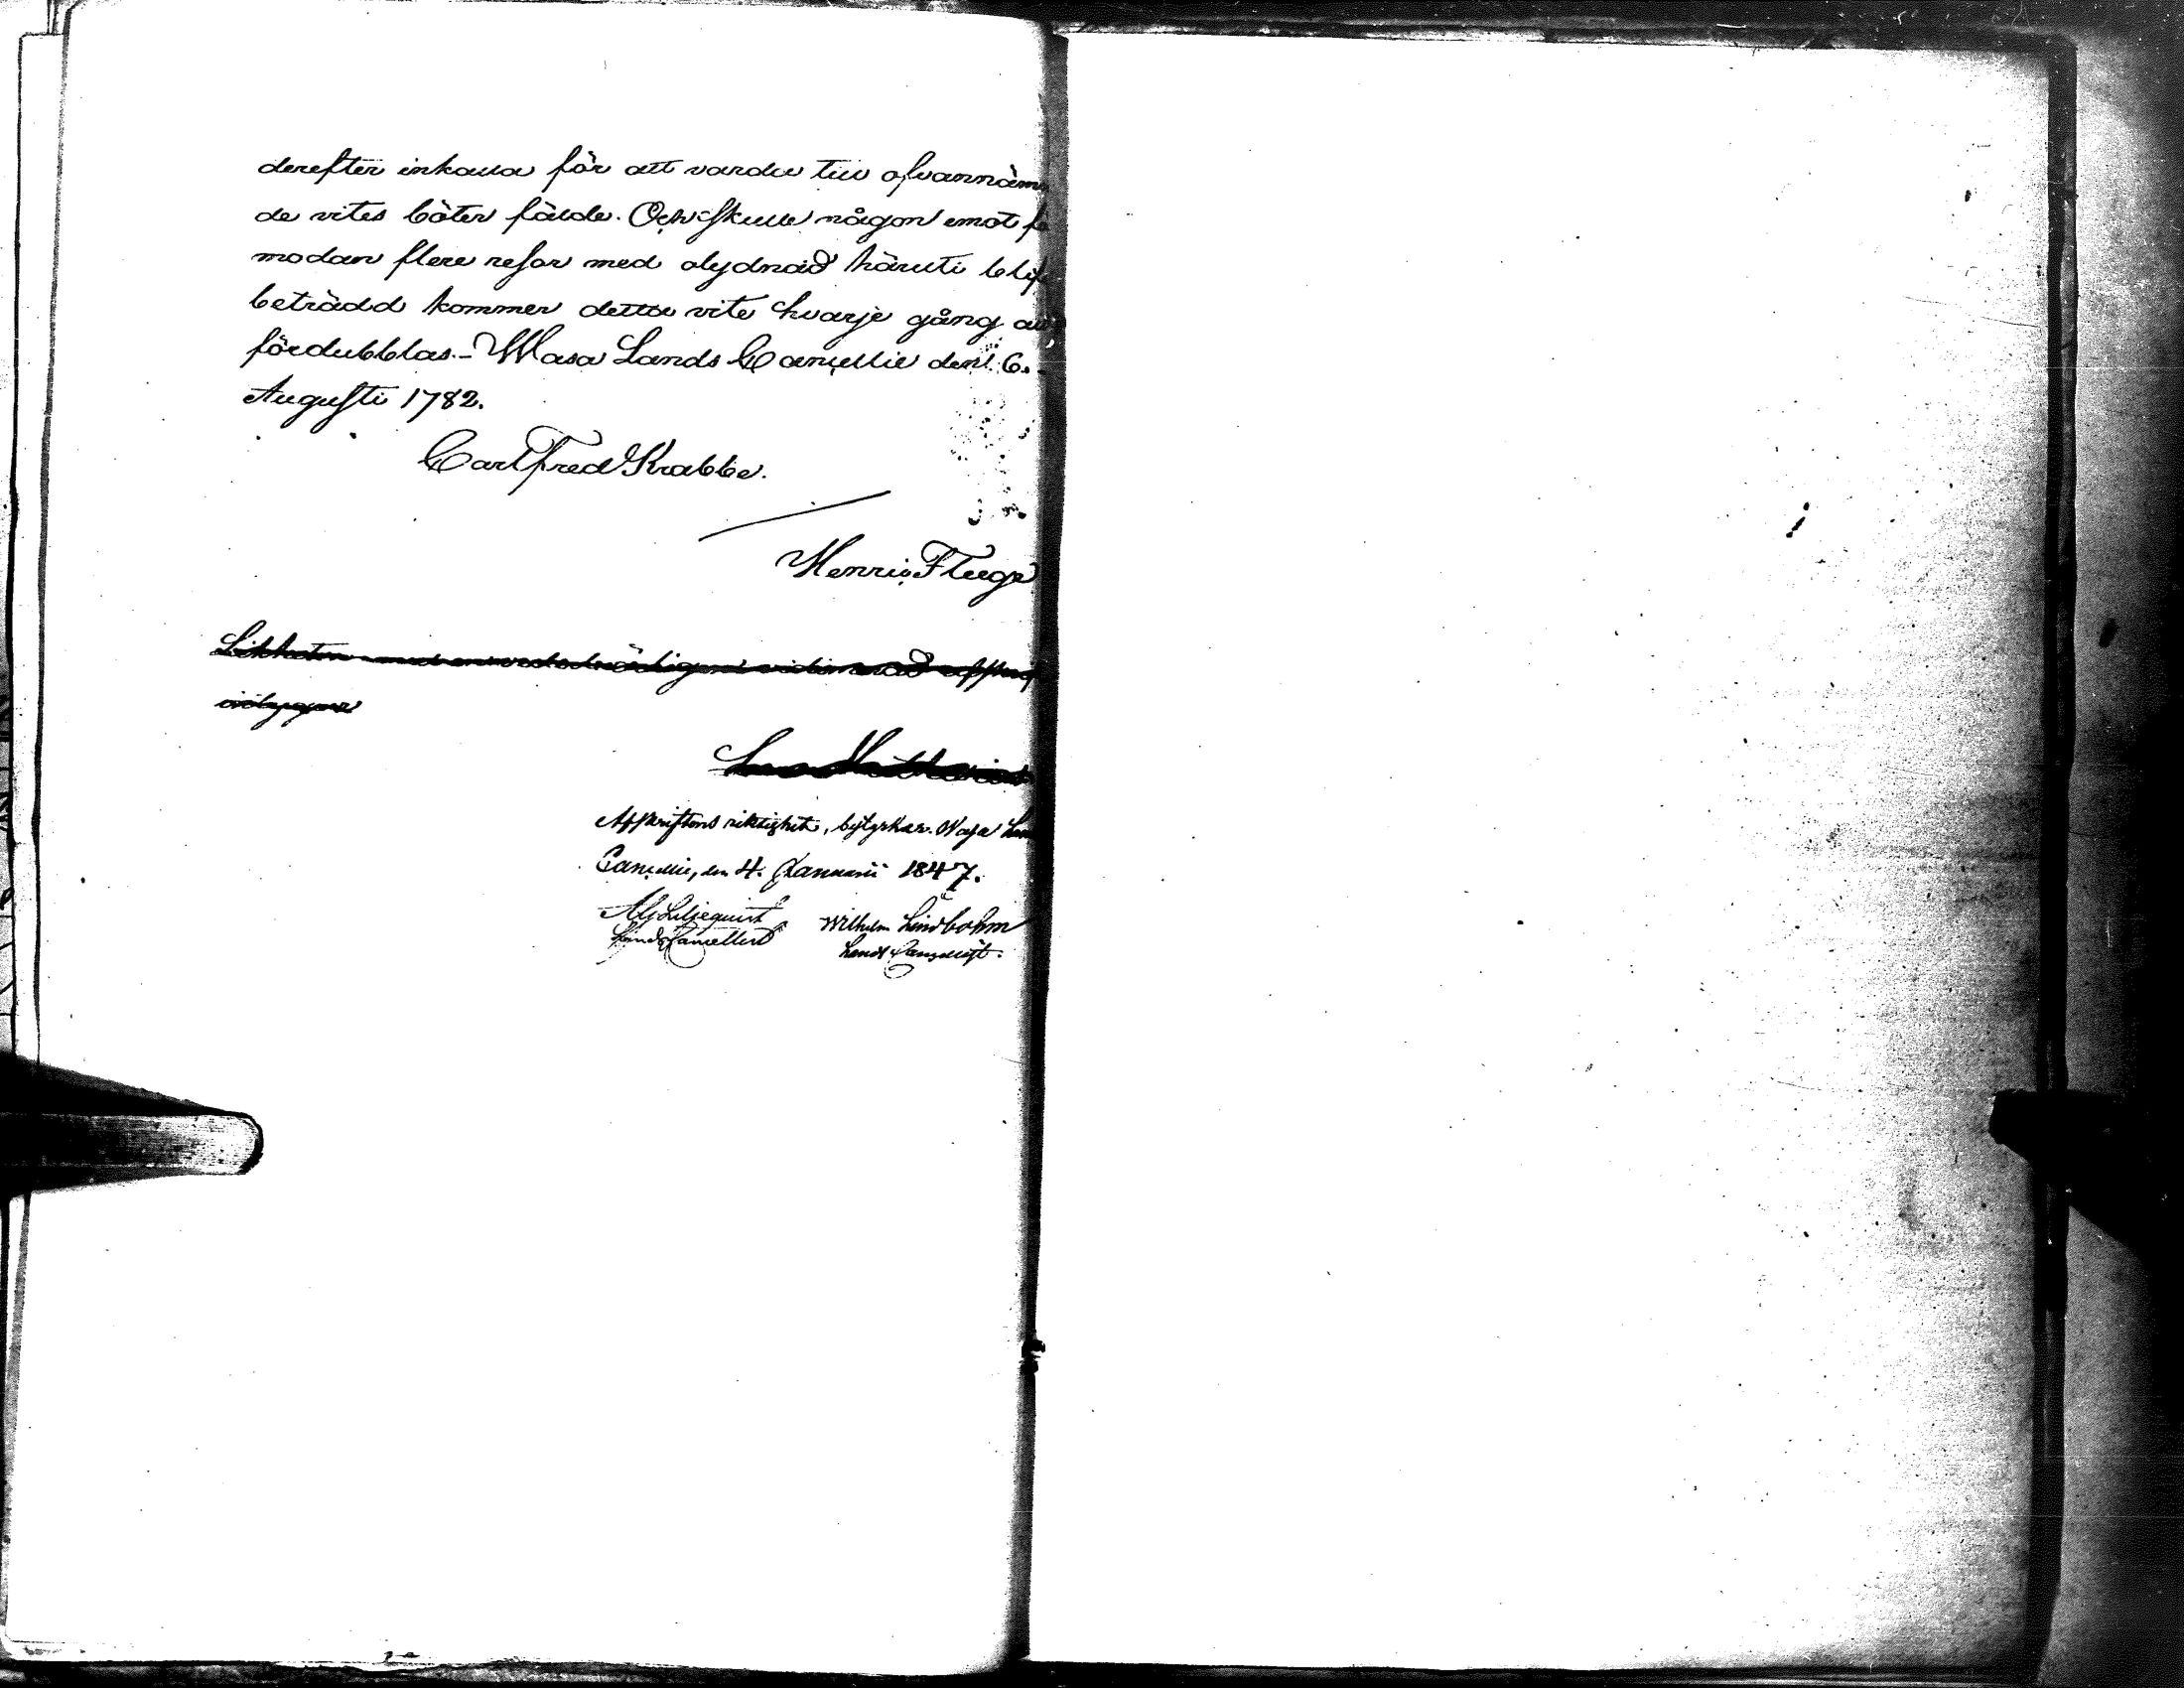 derefter inkalla för att varda till ofvannäm
de vites böter fälde. Och skulle någon emot fö
modan flere resor med olydnad häruti blif
beträdd kommer detta vite hvarje gång att
fördubblas. - Wasa Lands Cancellie den 6.
Augusti 1782.
Carl Fred Krabbe.
Henric Flege
Likheten med vidimerad afskrif
intygar
Afskriftens riktighet, betyrkar. Wasa Lan
Cancellie, den 4. Januarii 1847.
Liljequist Wilhelm Lindbohm
Lands Cancellist Lands Cancellist.